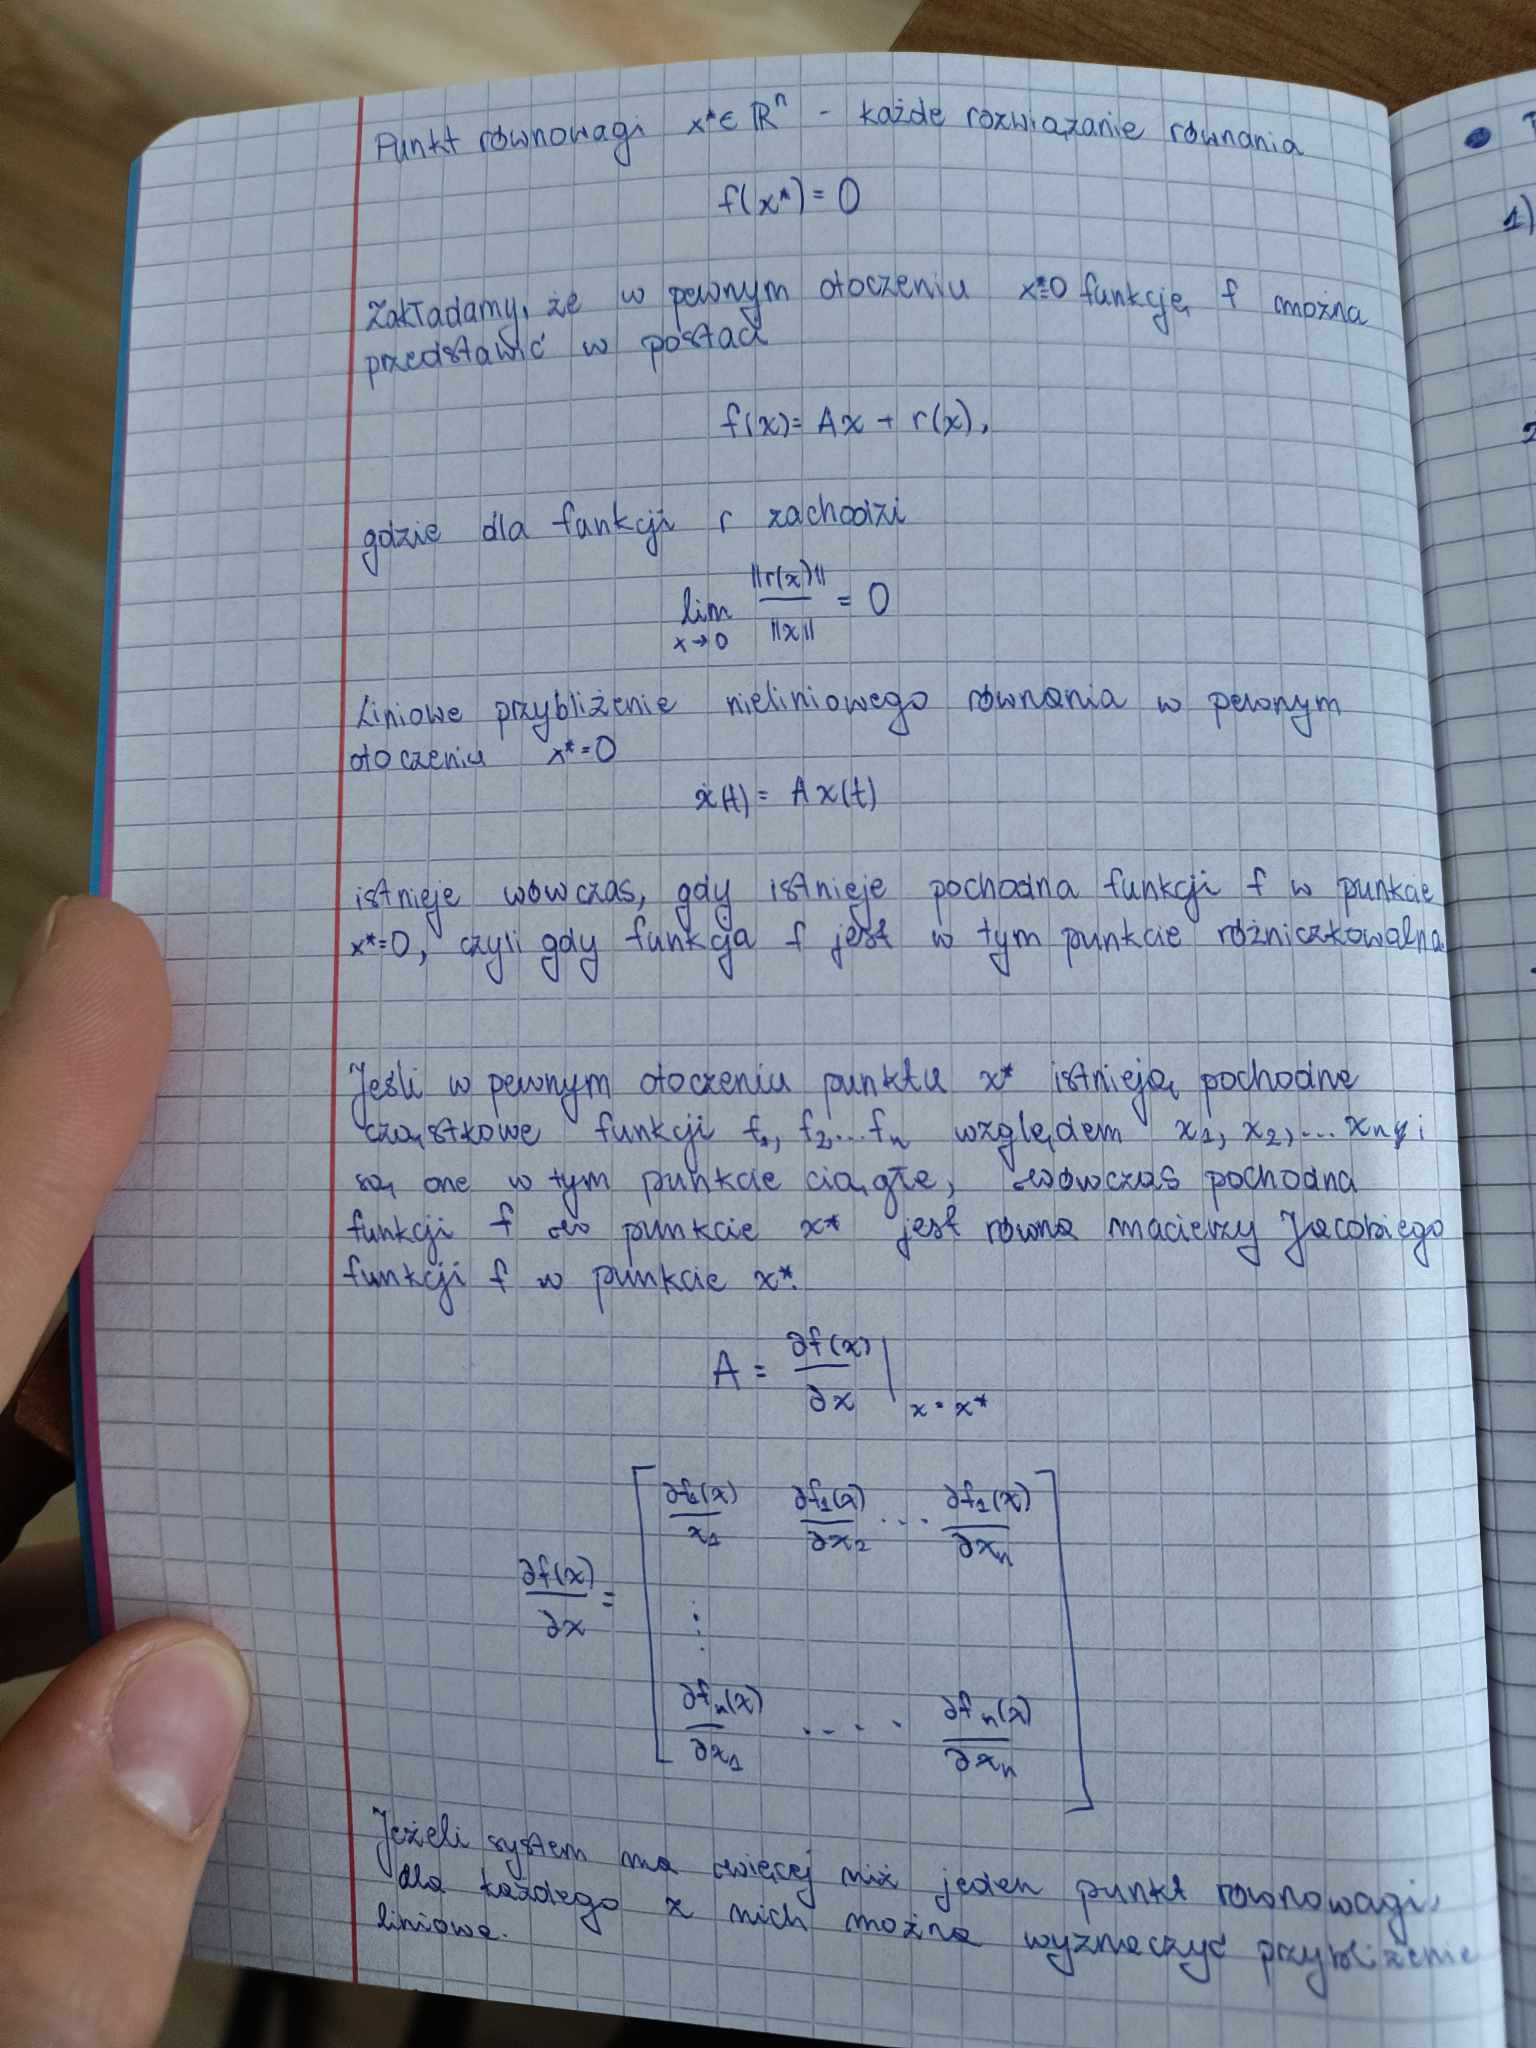 Punkt równowagi x* ∈ ℝⁿ - każde rozwiązanie równania
f(x*) = 0
Zakładamy, że w pewnym otoczeniu x*=0 funkcję f można
przedstawić w postaci
f(x) = Ax + r(x),
gdzie dla funkcji r zachodzi
lim x→0 ||r(x)|| / ||x|| = 0
Liniowe przybliżenie nieliniowego równania w pewnym
otoczeniu x* = 0
ẋ(t) = Ax(t)
istnieje wówczas, gdy istnieje pochodna funkcji f w punkcie
x*=0, czyli gdy funkcja f jest w tym punkcie różniczkowalna.
Jeśli w pewnym otoczeniu punktu x* istnieją pochodne
cząstkowe funkcji f₁, f₂...fₙ względem x₁, x₂,... xₙ, i
są one w tym punkcie ciągłe, wówczas pochodna
funkcji f w punkcie x* jest równa macierzy Jacobiego
funkcji f w punkcie x*.
A = ∂f(x)/∂x | x = x*
∂f₁(x)/x₁ ∂f₁(x)/∂x₂ ... ∂f₁(x)/∂xₙ
∂f(x)/∂x =
⋮
∂fₙ(x)/∂x₁ .... ∂fₙ(x)/∂xₙ
Jeżeli system ma więcej niż jeden punkt równowagi,
dla każdego z nich można wyznaczyć przybliżenie
liniowe.
1)
2